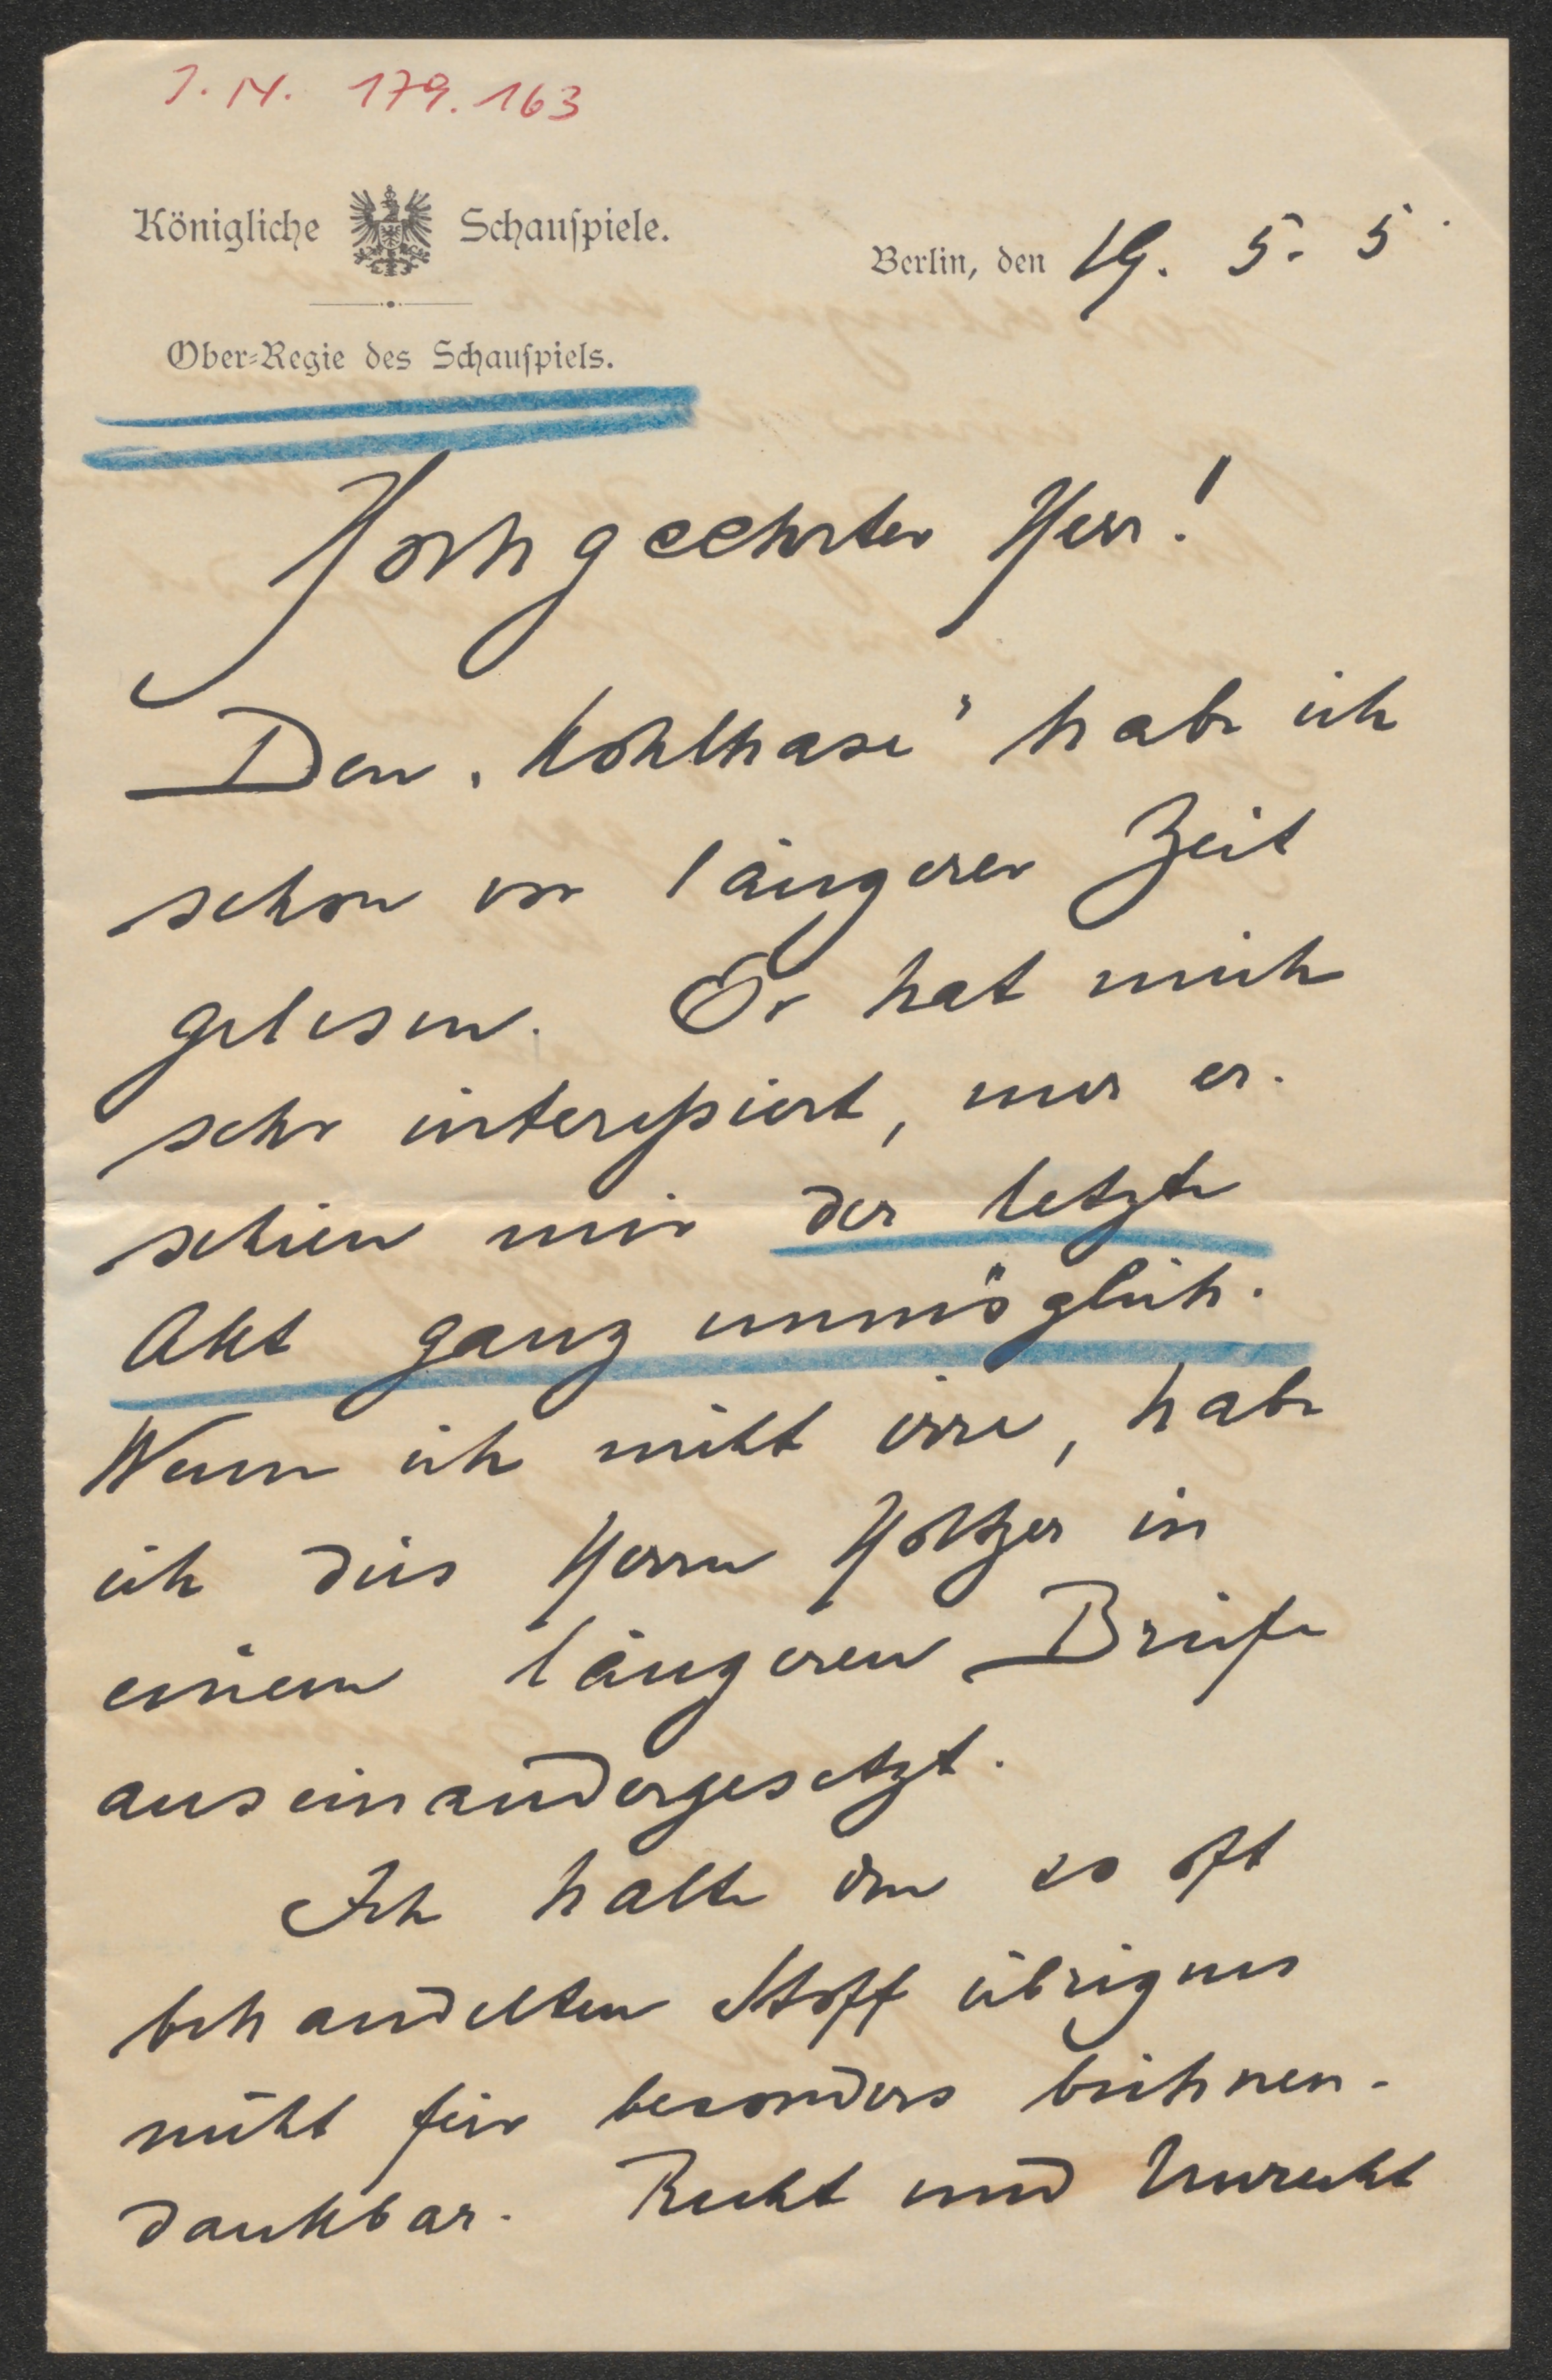 I. N. 179.163
Königliche Schauspiele.
Berlin, den 19. 5. 5.
Ober-Regie des Schauspiels.
Hochgeehrter Herr!
Den „Kohlhase" habe ich
schon vor längerer Zeit
gelesen. Er hat mich
sehr interessiert, nur er-
schien mir der letzte
Akt ganz unmöglich.
Wenn ich nicht irre, habe
ich dies Herrn Holtzer in
einem längeren Briefe
auseinandergesetzt.
Ich halte den so oft
behandelten Stoff übrigens
nicht für besonders bühnen-
dankbar. Recht und Unrecht